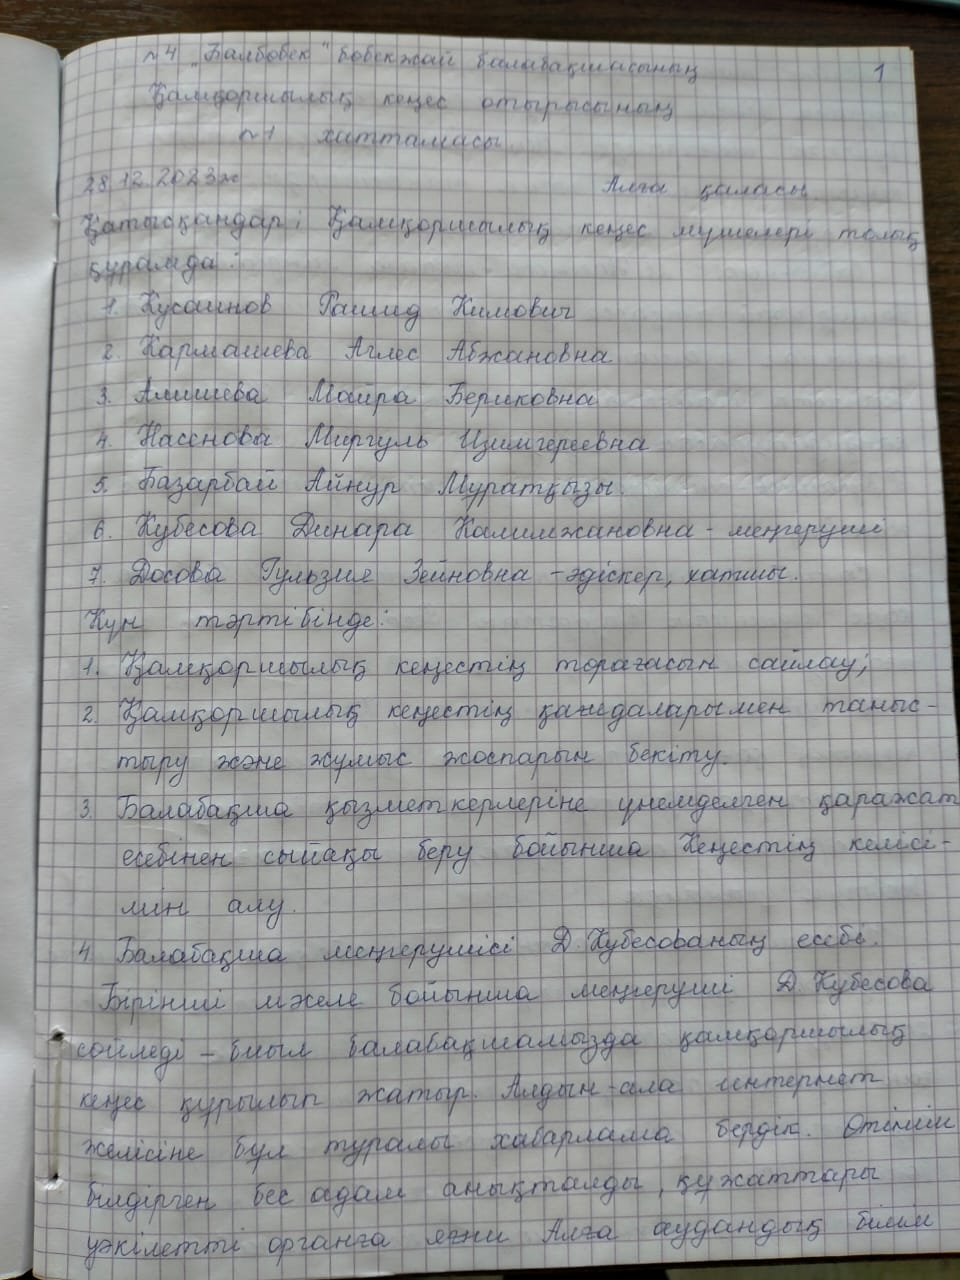 №4 "Балбөбек" бөбекжай балабақшасының
1
Қамқоршылық кеңес отырысының
№1 хаттамасы
28.12.2023ж
Алға қаласы
Қатысқандар: Қамқоршылық кеңес мүшелері толық
құрамда:
1. Кусаинов Рашид Кимович
2. Кармашева Аглес Абжановна
3. Алишева Майра Бериковна
4. Насенова Миргуль Ізимгереевна
5. Базарбай Айнур Муратқызы.
6. Кубесова Динара Калимжановна - меңгеруші
7. Досова Гульзия Зейновна - әдіскер, хатшы.
Күн тәртібінде:
1. Қамқоршылық кеңестің төрағасын сайлау;
2. Қамқоршылық кеңестің қағидаларымен таныс-
тыру және жұмыс жоспарын бекіту.
3. Балабақша қызметкерлеріне үнемделген қаражат
есебінен сыйақы беру бойынша Кеңестің келісі-
мин алу.
4 Балабақша меңгерушісі Д.Кубесованың есебі.
Бірінші мәселе бойынша меңгеруші Д.Кубесова
сөйледі - биыл балабақшамызда қамқоршылық
кеңес құрылып жатыр. Алдын-ала интернет
желісіне бұл туралы хабарлама бердік. Өтініш
білдірген бес адам анықталды, құжаттары
уәкілетті органға яғни Алға аудандық білім